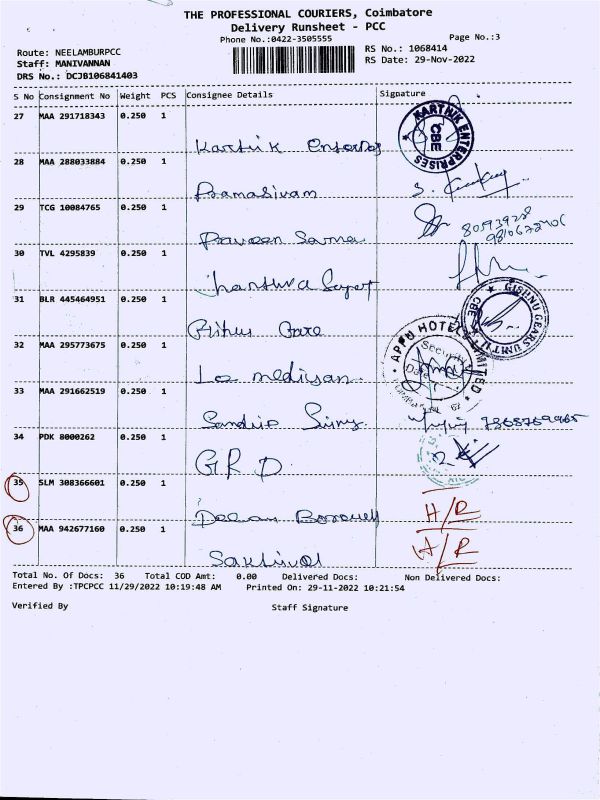 THE PROFESSIONAL COURIERS, Coimbatore
Delivery Runsheet - PCC
Phone No.:0422-3505555
Page No.:3
Route: NEELAMBURPCC
RS No.: 1068414
Staff: MANIVANNAN
RS Date: 29-Nov-2022
DRS No.: DCJB106841403
S No Consignment No Weight PCS Consignee Details Signature
27 MAA 291718343 0.250 1
Karthik
KARTHIK ENTERPRISES CBE
28 MAA 288033884 0.250 1
Paramasivam
29 TCG 10084765 0.250 1
Praveen
30 TVL 4295839 0.250 1
31 BLR 445464951 0.250 1
GISHNU GEARS UNIT II CBE
32 MAA 295773675 0.250 1
APPU HOTELS LIMITED Security Date
33 MAA 291662519 0.250 1
34 PDK 8000262 0.250 1
G.R.D
35 SLM 308366601 0.250 1
H/R
36 MAA 942677160 0.250 1
Sakthivel
H/R
Total No. Of Docs: 36 Total COD Amt: 0.00 Delivered Docs: Non Delivered Docs:
Entered By :TPCPCC 11/29/2022 10:19:48 AM Printed On: 29-11-2022 10:21:54
Verified By Staff Signature